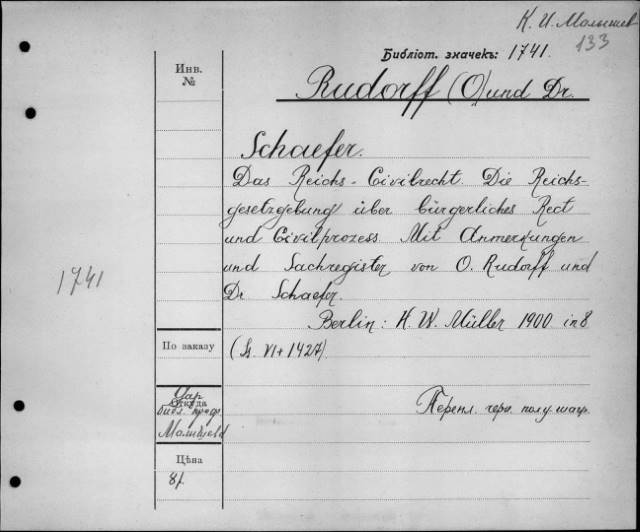 К. И. Малышев
133
Библіот. значекъ: 1741.
Инв.
№
Rudorff (O) und Dr.
Schaefer.
Das Reichs-Civilrecht. Die Reichs-
gesetzgebung über bürgerliches Rect
und Civilprozess Mit Anmerkungen
und Sachregister von O. Rudorff und
Dr Schaefer.
1741
Berlin: H. W. Müller 1900 in 8
По заказу
(S. VI + 1427).
Дар
Откуда
библ. проф.
Малышева
Перепл. черн. полушагр.
Цѣна
8 р.